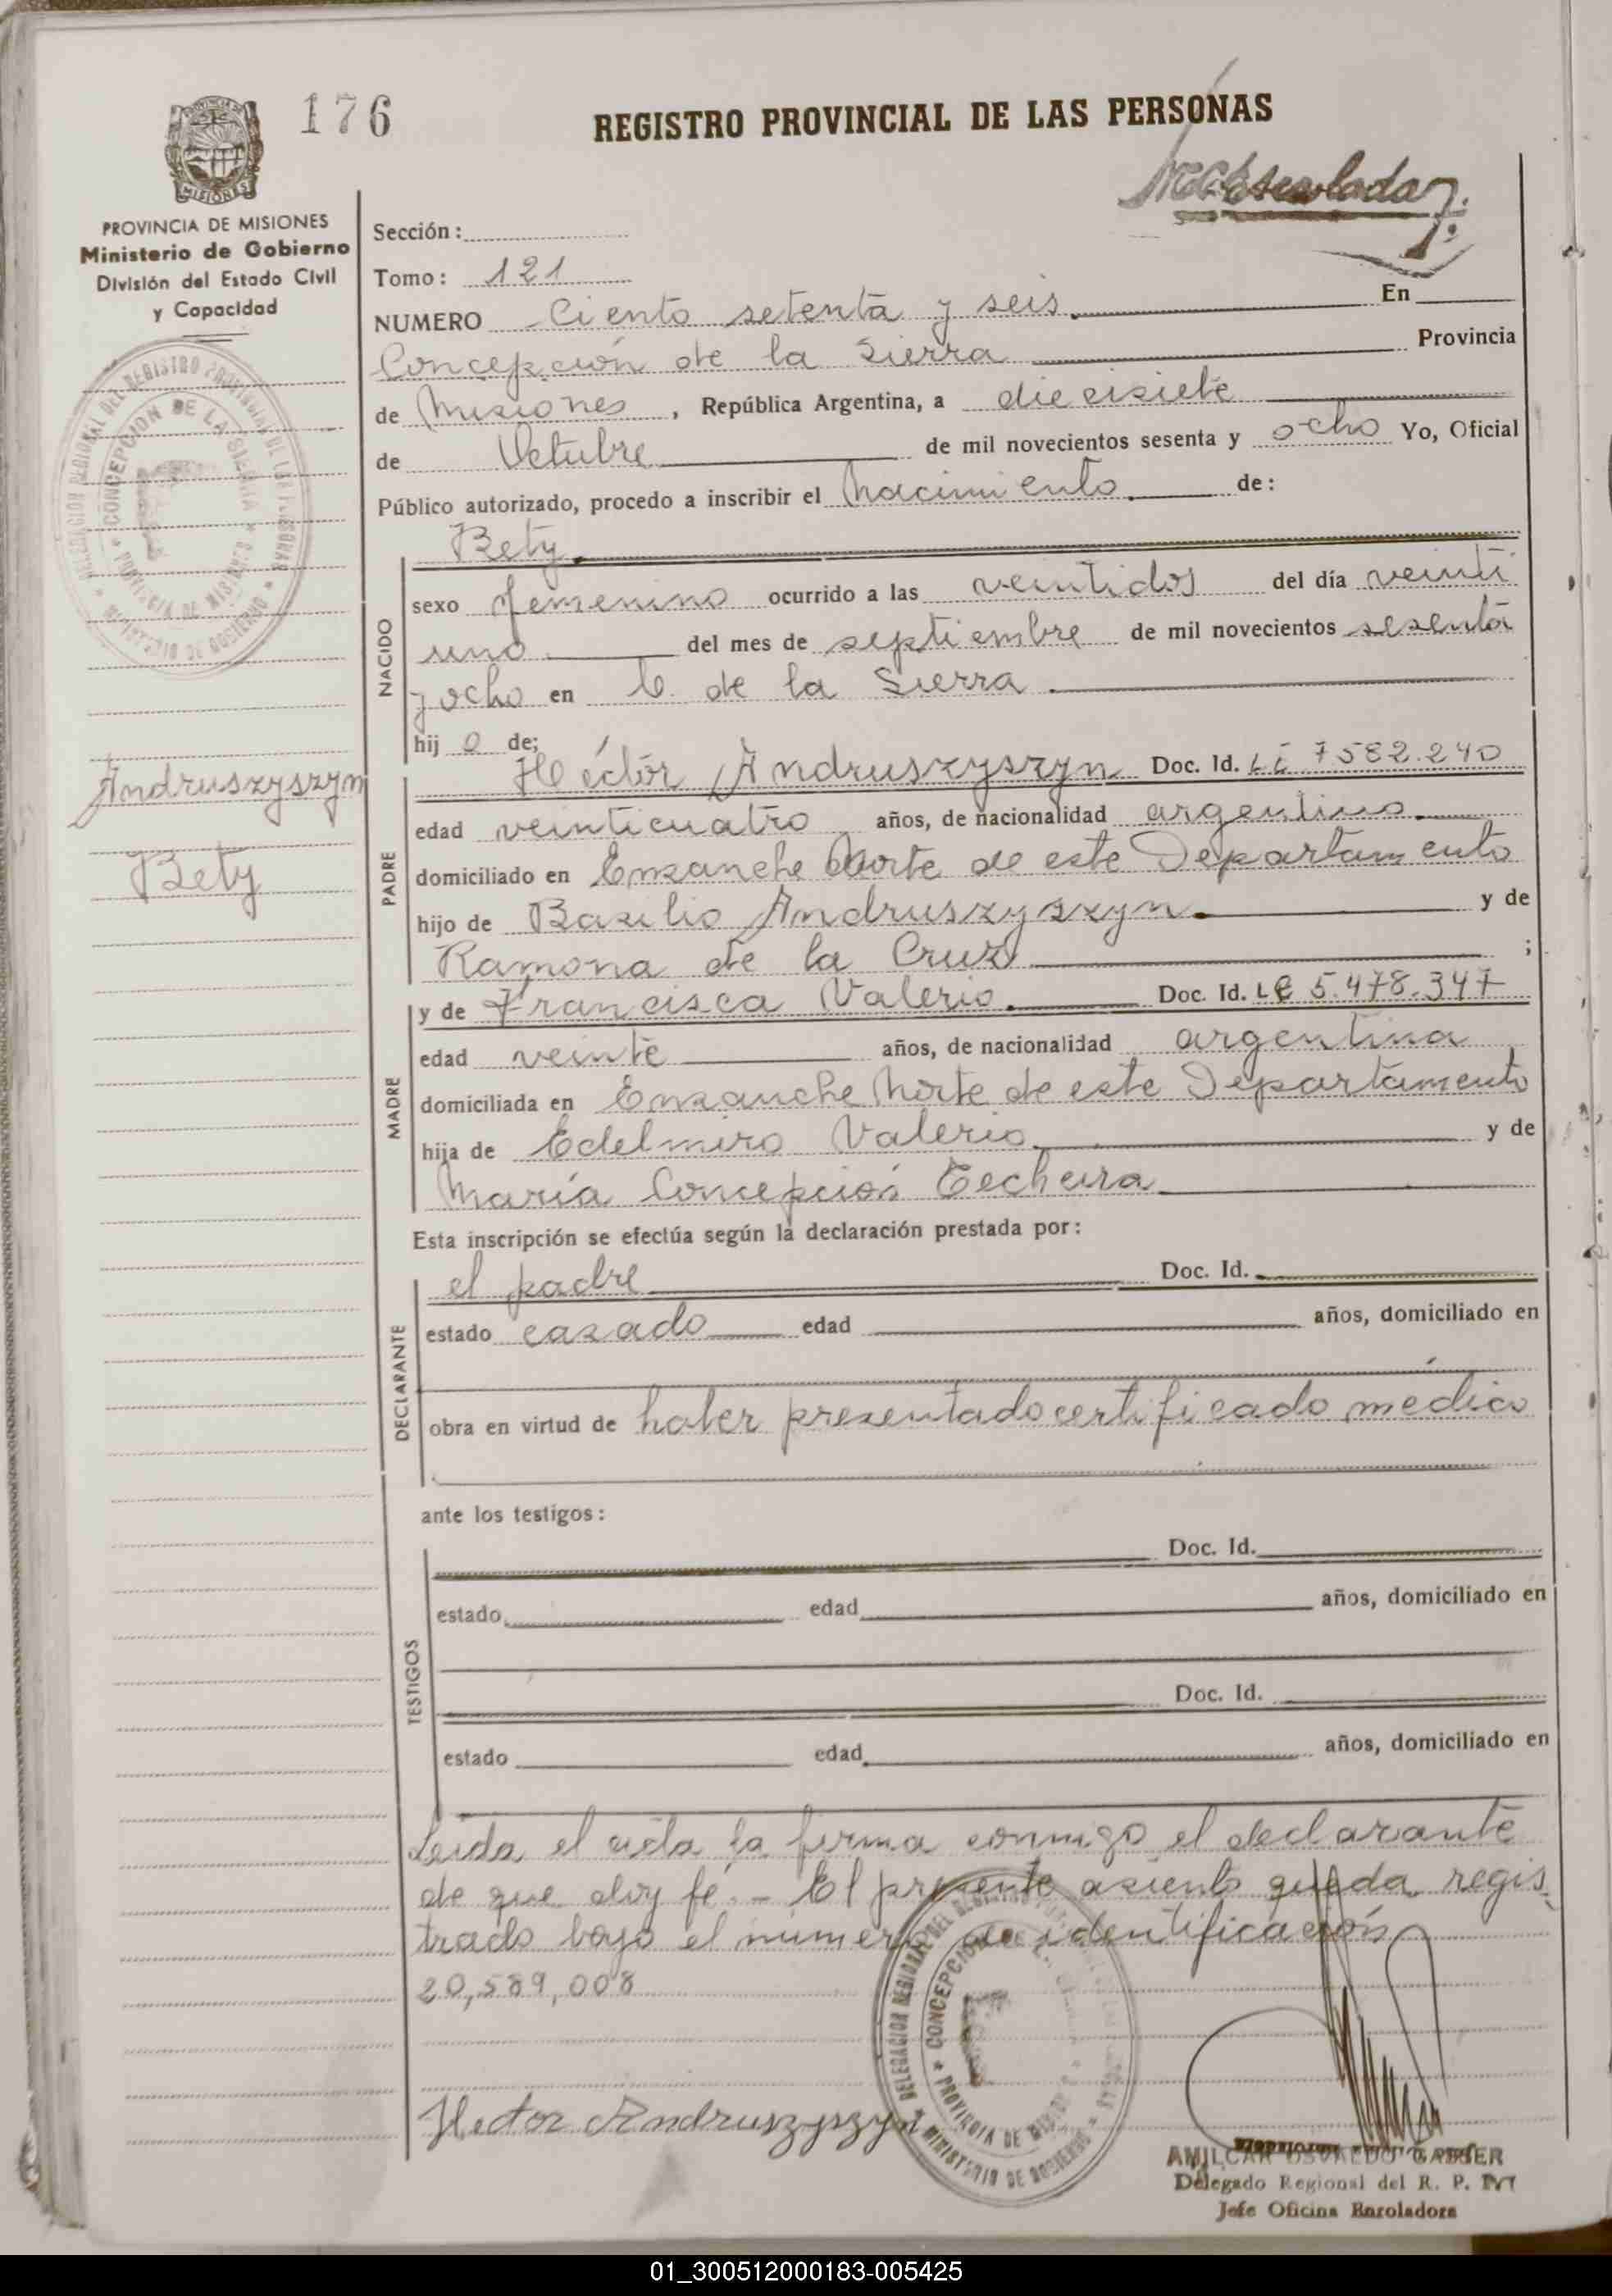 176
REGISTRO PROVINCIAL DE LAS PERSONAS
PROVINCIA DE MISIONES
Ministerio de Gobierno
División del Estado Civil
y Capacidad
Sección:
Tomo: 121
NUMERO Ciento setenta y seis. En
Concepción de la Sierra Provincia
de Misiones, República Argentina, a diecisiete
de Octubre de mil novecientos sesenta y ocho Yo, Oficial
Público autorizado, procedo a inscribir el nacimiento de:
NACIDO
Bety.
sexo femenino ocurrido a las veintidos del día veinti
uno del mes de septiembre de mil novecientos sesenta
y ocho en C. de la Sierra.
hij a de;
Andruszyszyn
Bety
PADRE
Héctor Andruszyszyn Doc. Id. LE 7582.240
edad veinticuatro años, de nacionalidad argentino.
domiciliado en Ensanche Norte de este Departamento
hijo de Basilio Andruszyszyn. y de
Ramona de la Cruz ;
MADRE
y de Francisca Valerio. Doc. Id. LC 5.478.347
edad veinte años, de nacionalidad argentina
domiciliada en Ensanche Norte de este Departamento
hija de Edelmiro Valerio y de
María Concepción Techeira
Esta inscripción se efectúa según la declaración prestada por:
DECLARANTE
el padre Doc. Id.
estado casado edad años, domiciliado en
obra en virtud de haber presentado certificado médico
ante los testigos:
TESTIGOS
Doc. Id.
estado edad años, domiciliado en
Doc. Id.
estado edad años, domiciliado en
Leida el acta la firma conmigo el declarante
de que doy fé.- El presente asiento queda regis
trado bajo el número de identificación
20,589,008
Hector Andruszyszyn
DELEGACION REGIONAL DEL REGISTRO PROVINCIAL DE LAS PERSONAS
CONCEPCION DE LA SIERRA
PROVINCIA DE MISIONES
MINISTERIO DE GOBIERNO
AMILCAR OSVALDO GASSER
Delegado Regional del R. P.
Jefe Oficina Enroladora
01_300512000183-005425